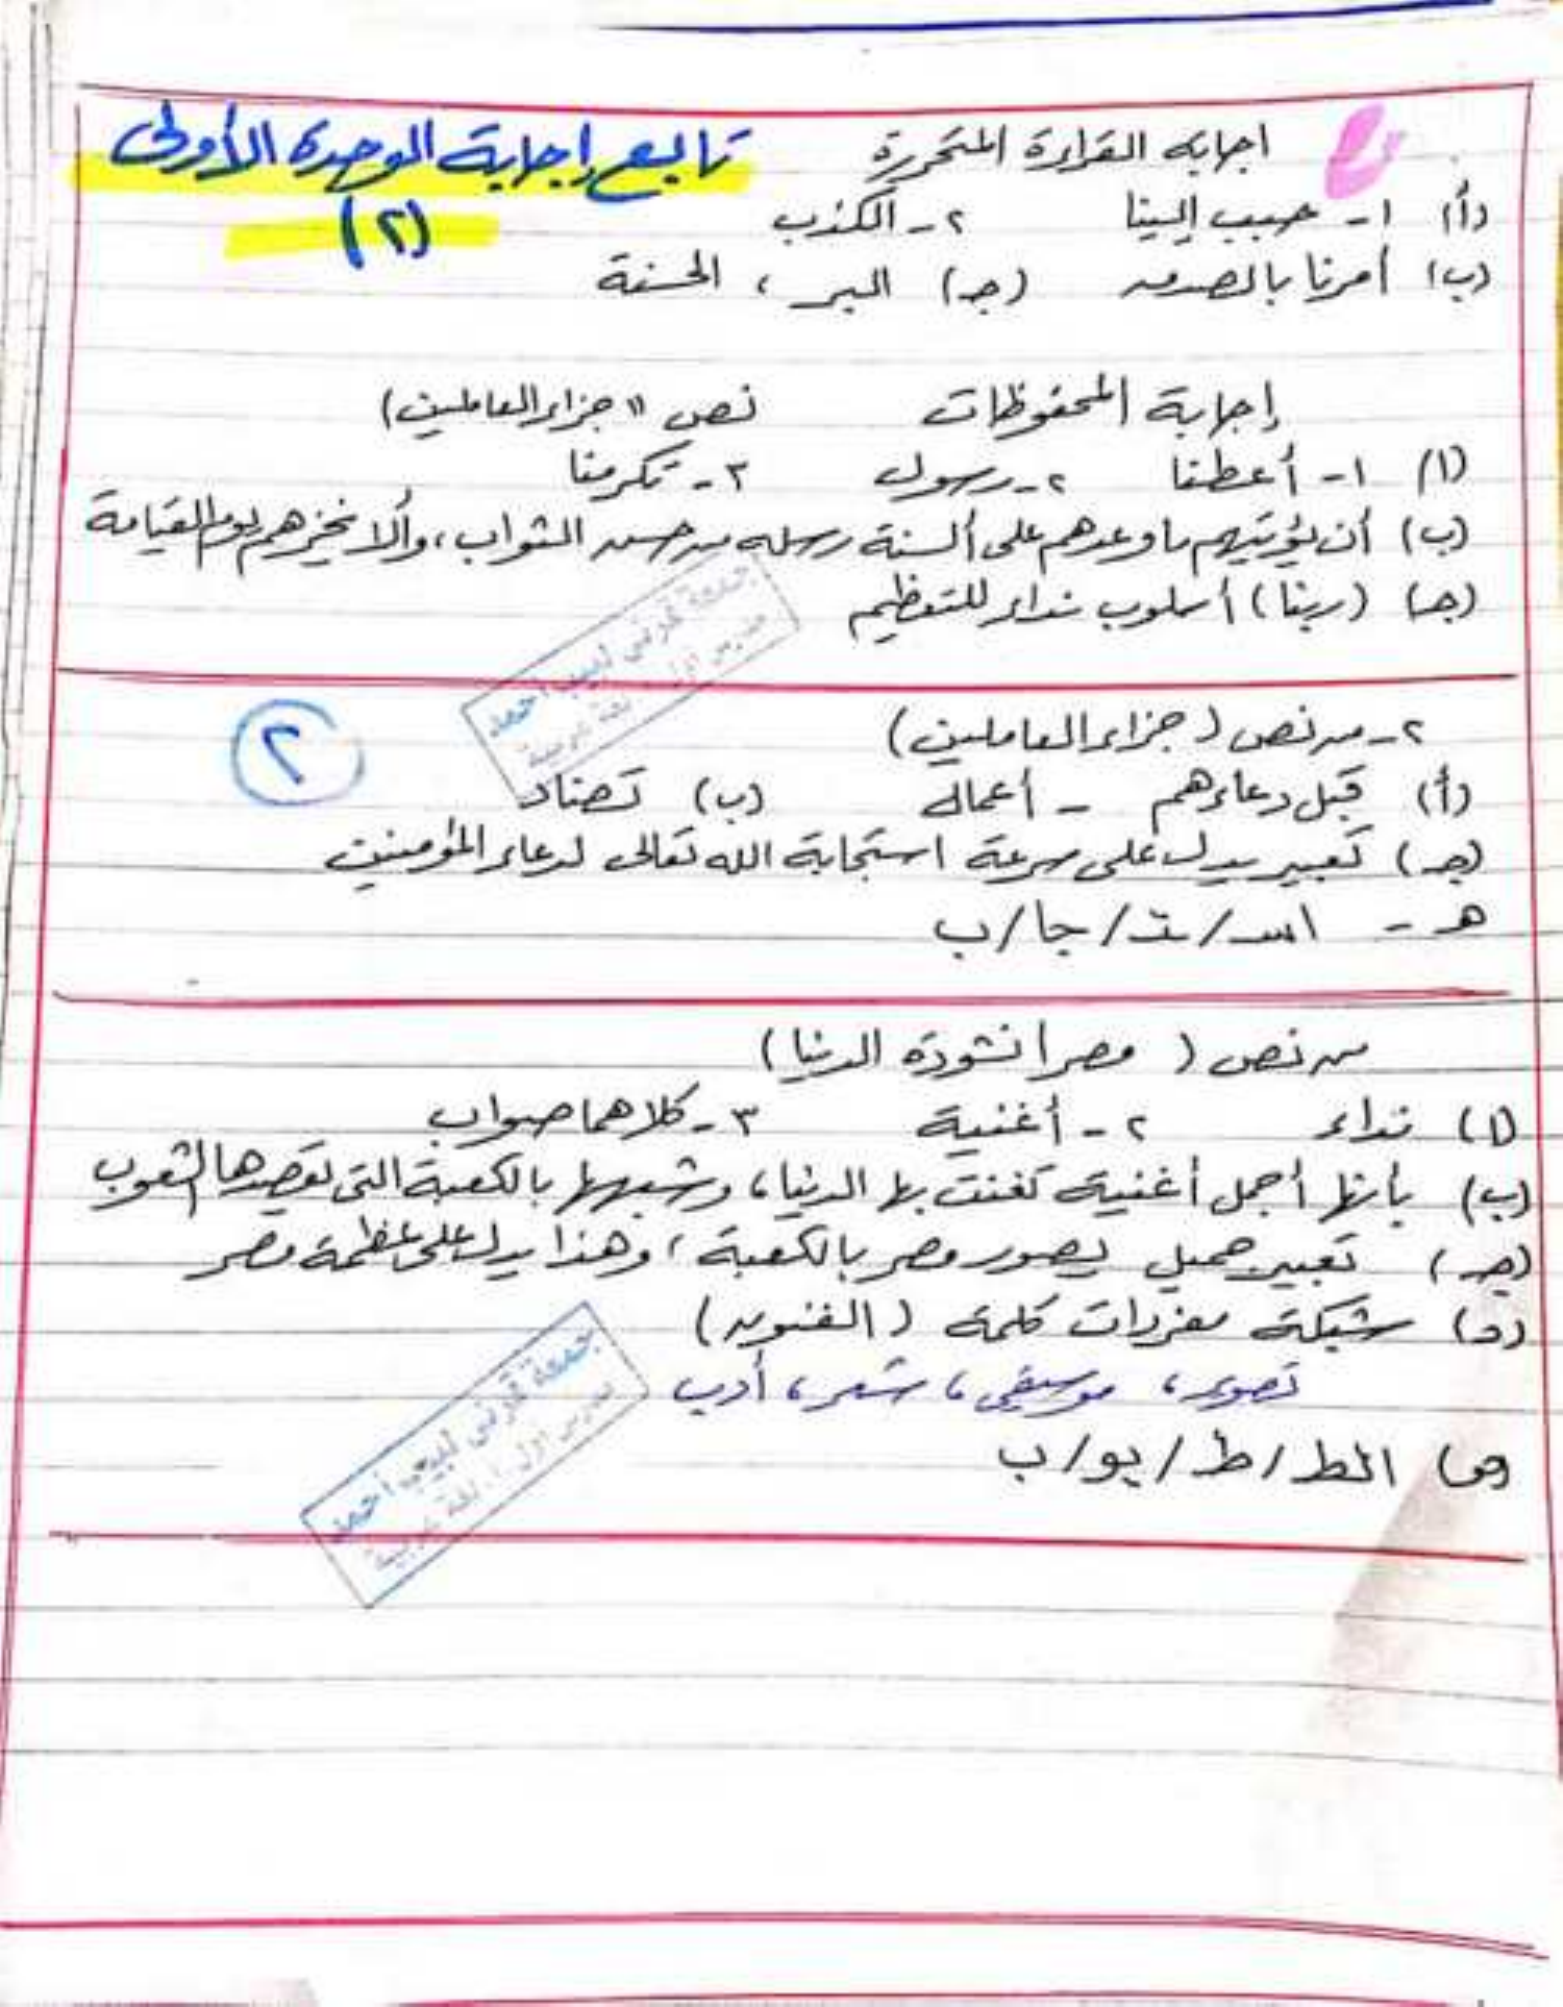 تابع إجابة الوحدة الأولى
(٢)
اجابه القراءة المتحررة
(أ) ١- حبب إلينا ٢- الكذب
(ب) أمرنا بالصدق (جـ) البر ، الحسنة
إجابة المحفوظات نص " جزاء العاملين)
(ا) ١- أعطنا ٢- رسول ٣- تكرمنا
(ب) أن يؤتيهم ما وعدهم على ألسنة رسله من حسن الثواب ، وألا يخزهم يوم القيامة
(جـ) (ربنا) أسلوب نداء للتعظيم
جمعة قرني لبيب أحمد
مدرس أول أ. لغة عربية
٢- من نص (جزاء العاملين)
٢
(أ) قبل دعاءهم - أعمال (ب) تضاد
(جـ) تعبير يدل على سرعة استجابة الله تعالى لدعاء المؤمنين
هـ - اسـ / تـ / جا / ب
من نص ( مصر انشودة الدنيا)
(ا) نداء ٢- أغنية ٣- كلاهما صواب
(ب) بأنها أجمل أغنية تغنت بها الدنيا ، وشبهها بالكعبة التى تقصدها الشعوب
(جـ) تعبير جميل يصور مصر بالكعبة ، وهذا يدل على عظمة مصر
(د) شبكة مفردات كلمة (الفنون)
تصوير ، موسيقى ، شعر ، أدب
هـ) الط / ط / يو / ب
جمعة قرني لبيب أحمد
مدرس أول أ. لغة عربية